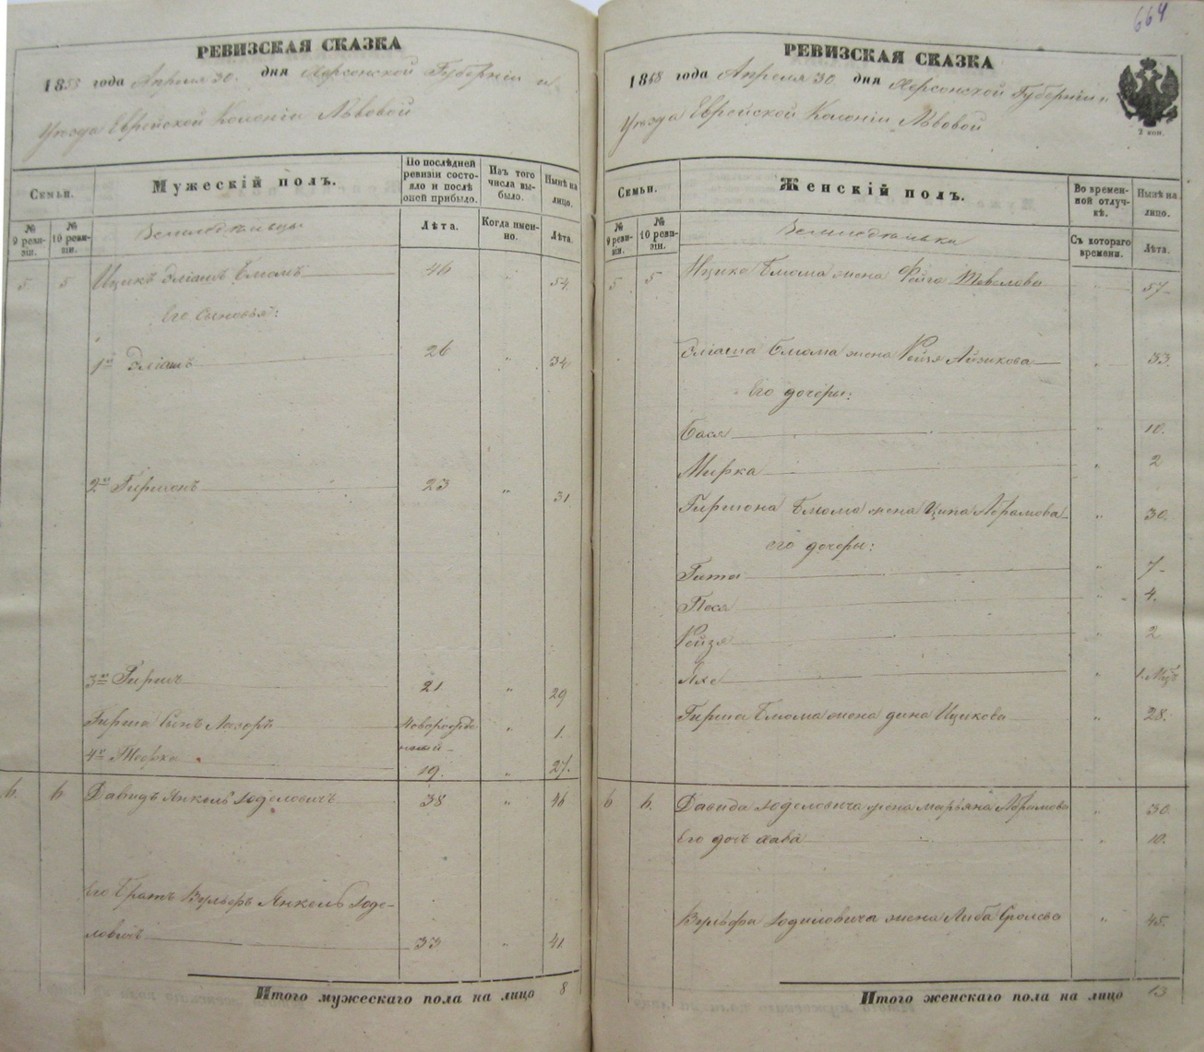 664
РЕВИЗСКАЯ СКАЗКА
1858 года Апреля 30. дня Херсонской Губерніи и
Уезда Еврейской Колоніи Львовой
Семьи.
Мужескій полъ.
По послѣдней ревизіи состояло и послѣ оней прибыло.
Изъ того числа выбыло.
Нынѣ на лицо.
№ 9 ревизіи.
№ 10 ревизіи.
Лѣта.
Когда именно.
Лѣта.
5 5 Ицикъ Эліашъ Блюмъ 46 " 54.
Его сыновья:
1й Эліашъ 26 " 34
2й Гиршонъ 23 " 31.
3й Гиршъ 21 " 29
Гирша Сынъ Лазоръ новорожденный " 1.
4й 19. " 27.
6. 6 Давидъ Янкель Іоделовичъ 38 " 46
Его Братъ Вульфъ Янкель Іоде-
ловичъ 33 " 41.
Итого мужескаго пола на лицо 8
РЕВИЗСКАЯ СКАЗКА
1858 года Апреля 30 дня Херсонской Губерніи и
Уезда Еврейской Колоніи Львовой
2 коп.
Семьи.
Женскій полъ.
Во временной отлучкѣ.
Нынѣ на лицо.
№ 9 ревизіи.
№ 10 ревизіи.
Съ котораго времени.
Лѣта.
5 5 Ицика Блюма жена Фейга 57
Эліаша Блюма жена Рейзя Айзикова " 33.
Его дочеры:
Бася " 10.
Мирка " 2
Гиршона Блюма жена Ципа Абрамова " 30.
его дочеры:
Гитя " 7
Песя " " 4.
Рейзя " 2
" 1.
Гирша Блюма жена дина Ицикова " 28.
6 6. Давида Іоделовича жена Марьяна Абрамова " 30.
Его дочь хава " 10.
Вульфа Іоделовича жена Либа Сролева " 45.
Итого женскаго пола на лицо 13